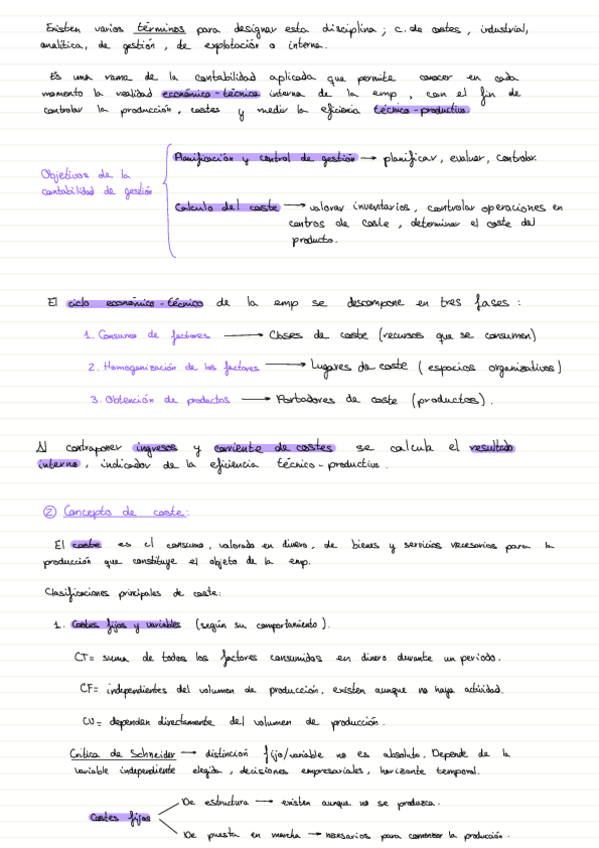 Existen varios términos para designar esta disciplina; c. de costes, industrial,
analítica, de gestión, de explotación o interna.
Es una rama de la contabilidad aplicada que permite conocer en cada
momento la realidad económico-técnica interna de la emp, con el fin de
controlar la producción, costes y medir la eficiencia técnico-productiva.
Planificación y control de gestión → planificar, evaluar, controlar.
Objetivos de la
contabilidad de gestión
Calculo del coste → valorar inventarios, controlar operaciones en
centros de coste, determinar el coste del
producto.
El ciclo económico-técnico de la emp se descompone en tres fases:
1. Consumo de factores → Clases de coste (recursos que se consumen)
2. Homogenización de los factores → Lugares de coste (espacios organizativos)
3. Obtención de productos → Portadores de coste (productos).
Al contraponer ingresos y corriente de costes se calcula el resultado
interno, indicador de la eficiencia técnico-productiva.
② Concepto de coste:
El coste es el consumo, valorado en dinero, de bienes y servicios necesarios para la
producción que constituye el objeto de la emp.
Clasificaciones principales de coste:
1. Costes fijos y variables (según su comportamiento).
CT= suma de todos los factores consumidos en dinero durante un periodo.
CF= independientes del volumen de producción, existen aunque no haya actividad.
CV= dependen directamente del volumen de producción.
Crítica de Schneider → distinción fijo/variable no es absoluta. Depende de la
variable independiente elegida, decisiones empresariales, horizonte temporal.
De estructura → existen aunque no se produzca.
Costes fijos
De puesta en marcha → necesarios para comenzar la producción.